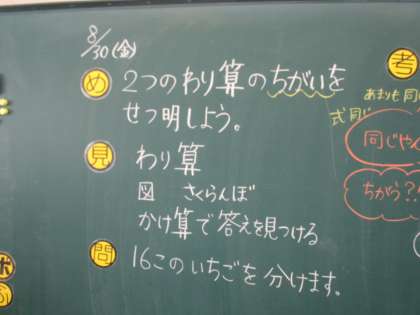 8/30(金)
め 2つのわり算のちがいを
せつ明しよう。
見 わり算
図 さくらんぼ
かけ算で答えを見つける
問 16このいちごを分けます。
考
あまりも同
式同じ
同じやん
ちがう??